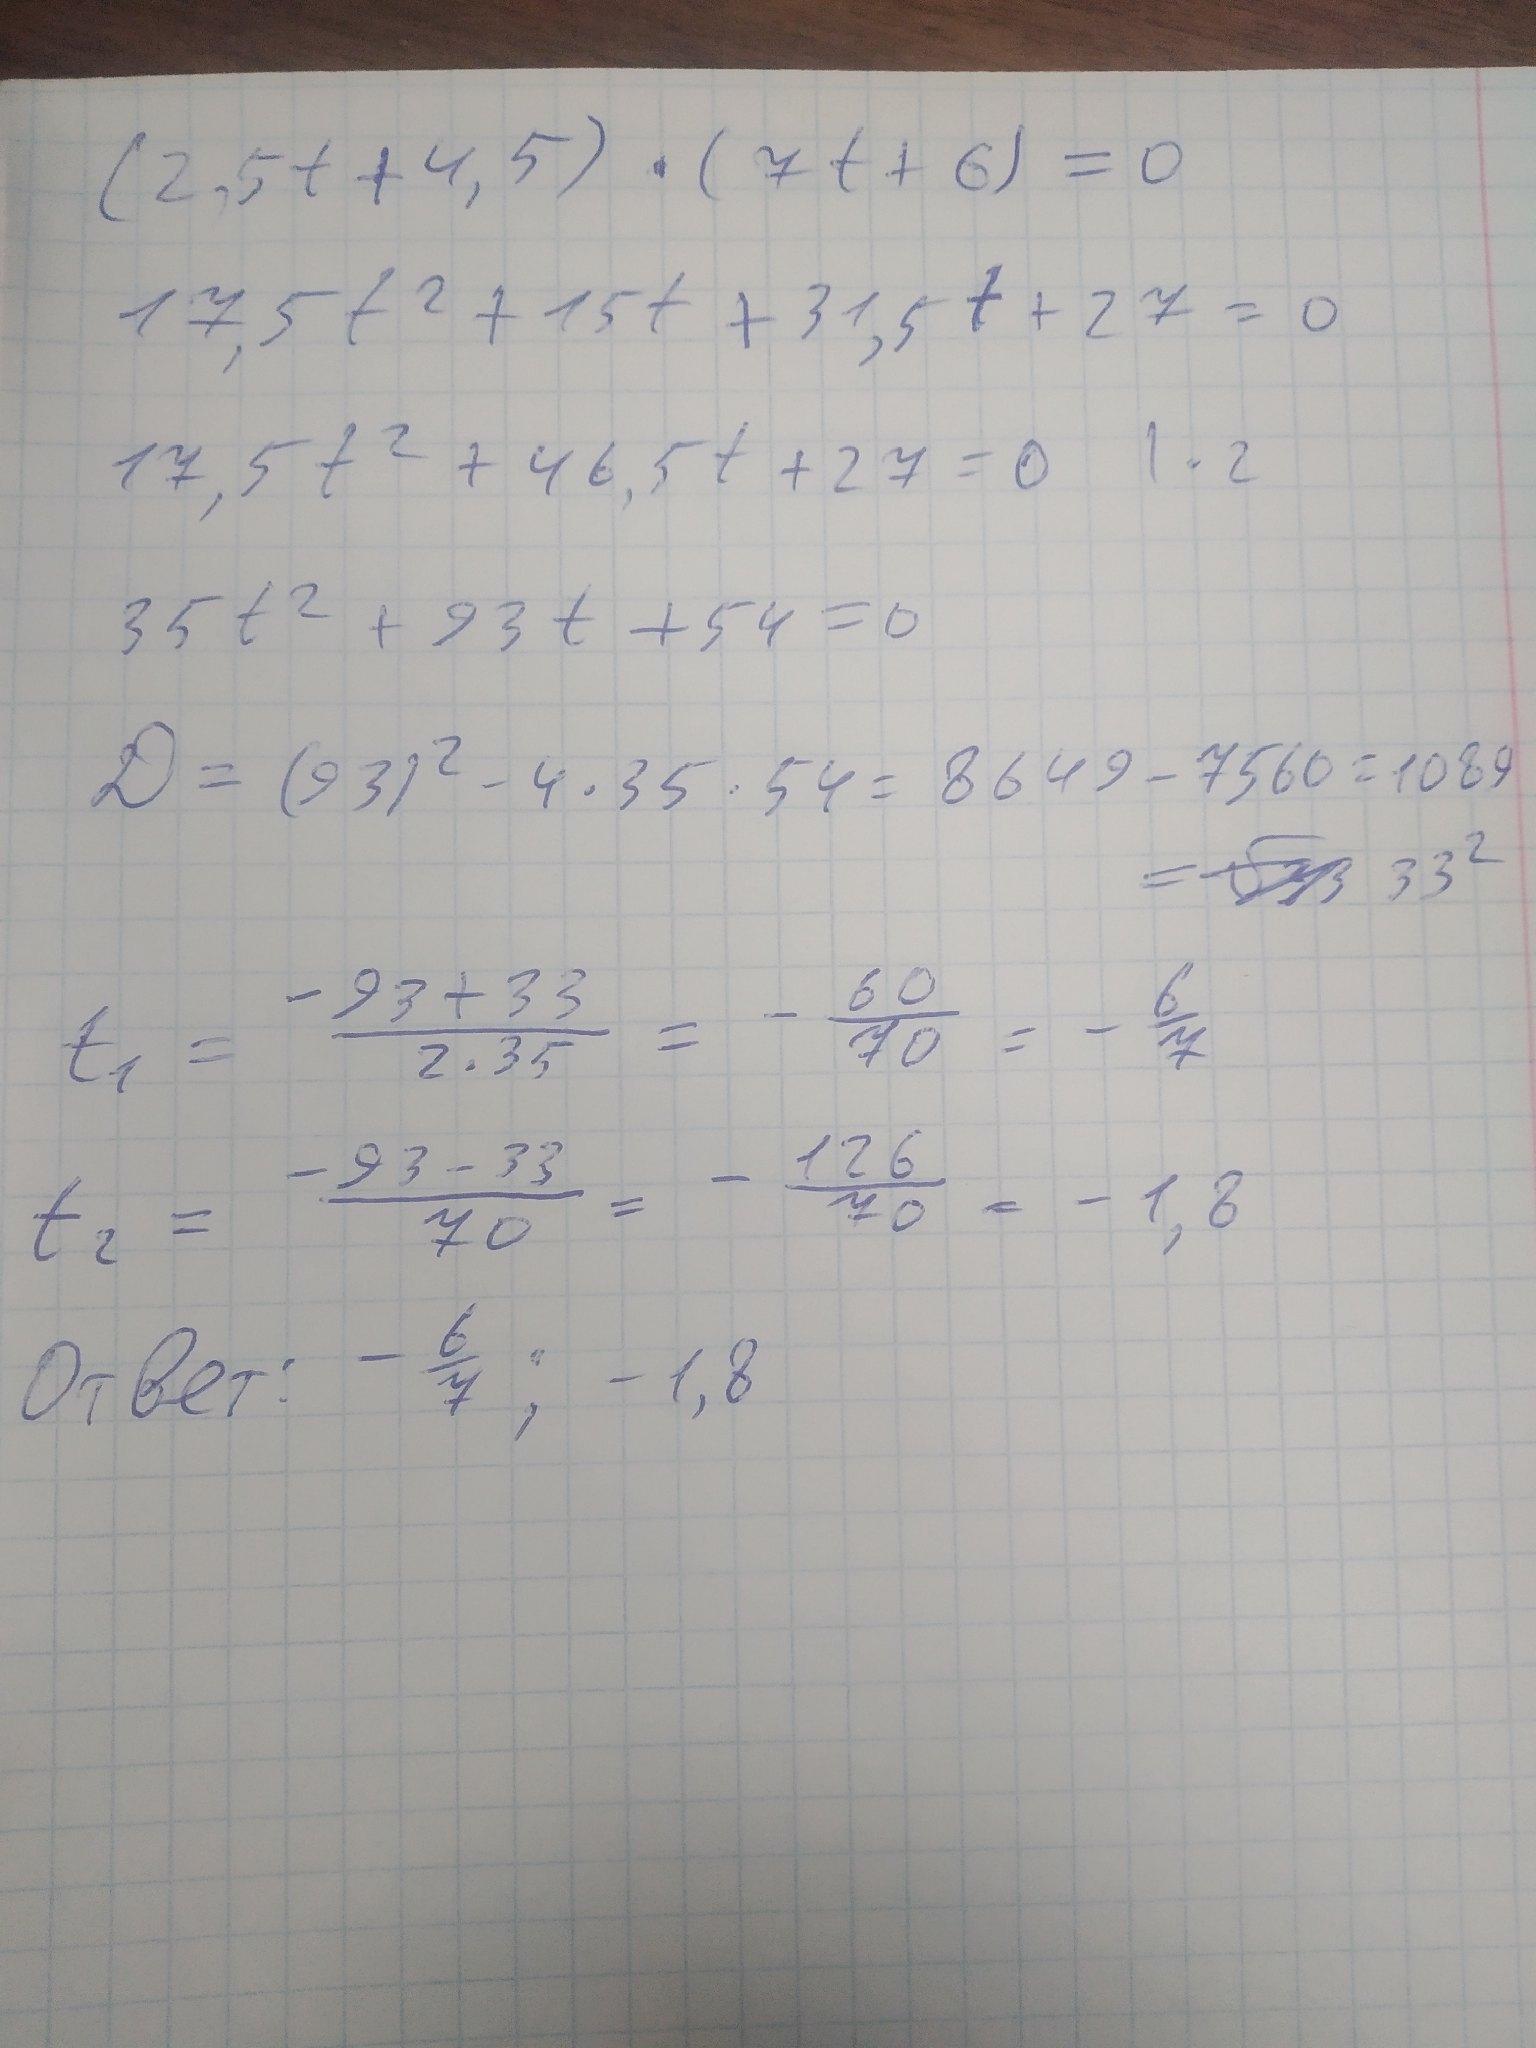 (2,5t+4,5)·(7t+6)=0
17,5t²+15t+31,5t+27=0
17,5t²+46,5t+27=0 |·2
35t²+93t+54=0
D=(93)²-4·35·54=8649-7560=1089
= 33²
t₁ = (-93+33)/(2·35) = -60/70 = -6/7
t₂ = (-93-33)/70 = -126/70 = -1,8
Ответ: -6/7; -1,8